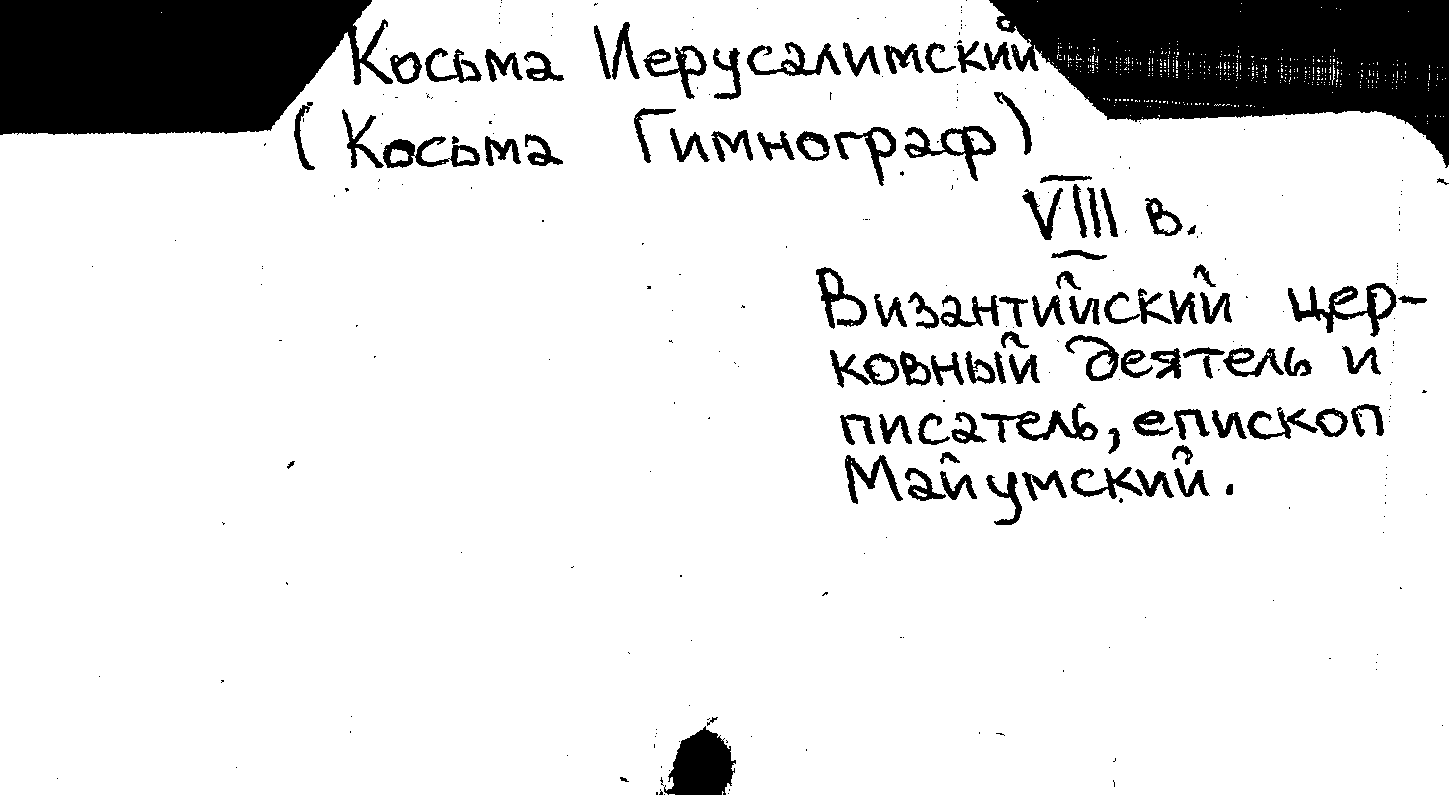 Косьма Иерусалимский
(Косьма Гимнограф)
VIII в.
Византийский цер-
ковный деятель и
писатель, епископ
Майумский.